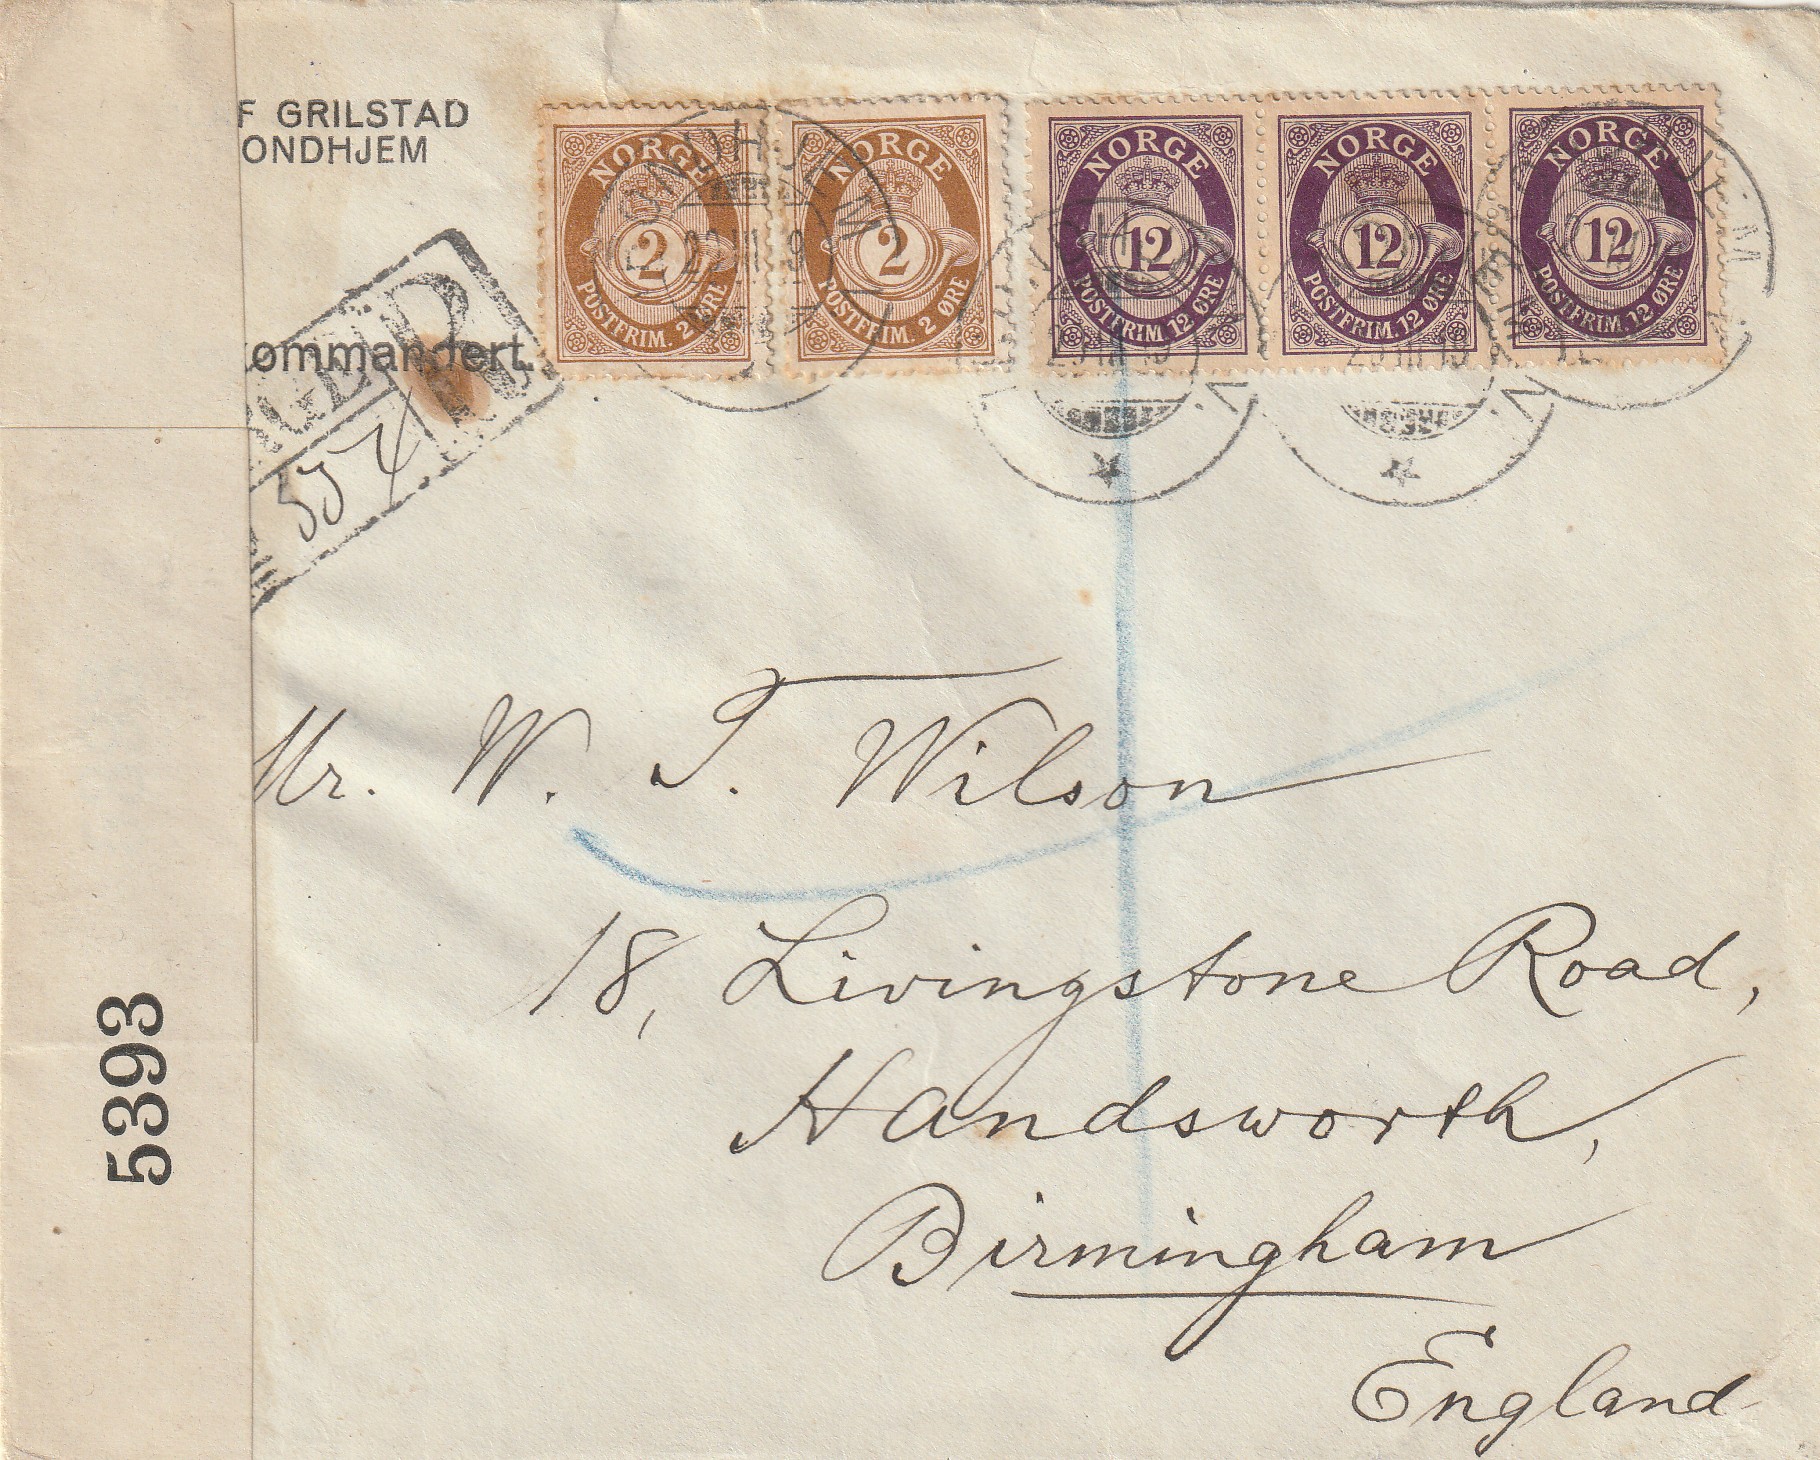 F GRILSTAD
ONDHJEM
NORGE 2 POSTFRIM. 2 ØRE
NORGE 2 POSTFRIM. 2 ØRE
NORGE 12 POSTFRIM. 12 ØRE
NORGE 12 POSTFRIM. 12 ØRE
NORGE 12 POSTFRIM. 12 ØRE
ommandert.
R
557
Mr. W. T. Wilson
18, Livingstone Road,
Handsworth,
Birmingham
England
5393